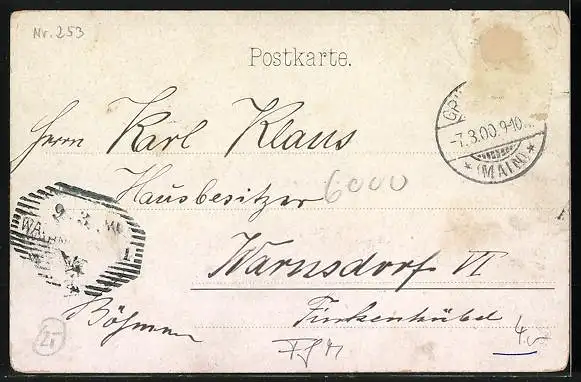 Nr. 253
Postkarte.
-7.3.00.9-10
* (MAIN) *
Herrn Karl Klaus
Hausbesitzer
6000
9. 3.
Warnsdorf VI
Böhmen
Finkenhübel
4.-